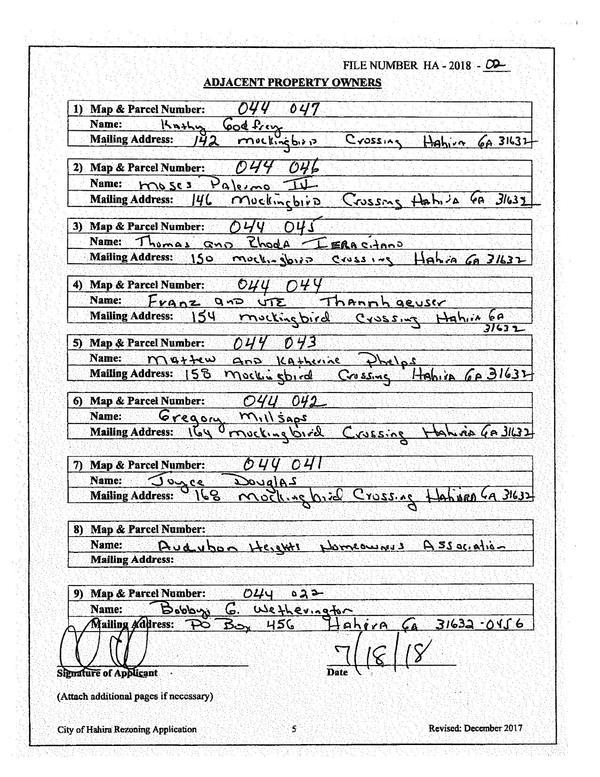 FILE NUMBER HA - 2018 - 02
ADJACENT PROPERTY OWNERS
1) Map & Parcel Number: 044 047
Name: Kathy Godfrey
Mailing Address: 142 Mockingbird Crossing Hahira GA 31632
2) Map & Parcel Number: 044 046
Name: Moses Palermo IV
Mailing Address: 146 Mockingbird Crossing Hahira GA 31632
3) Map & Parcel Number: 044 045
Name: Thomas and Rhoda IERACITANO
Mailing Address: 150 Mockingbird Crossing Hahira GA 31632
4) Map & Parcel Number: 044 044
Name: Franz and UTE Thannhaeuser
Mailing Address: 154 Mockingbird Crossing Hahira GA
31632
5) Map & Parcel Number: 044 043
Name: Mattew And Katherine Phelps
Mailing Address: 158 Mockingbird Crossing Hahira GA 31632
6) Map & Parcel Number: 044 042
Name: Gregory Millsaps
Mailing Address: 164 Mockingbird Crossing Hahira GA 31632
7) Map & Parcel Number: 044 041
Name: Joyce Douglas
Mailing Address: 168 Mockingbird Crossing Hahira GA 31632
8) Map & Parcel Number:
Name: Audubon Heights Homeowners Association
Mailing Address:
9) Map & Parcel Number: 044 022
Name: Bobby G. Wetherington
Mailing Address: PO Box 456 Hahira GA 31632-0456
7/18/18
Signature of Applicant Date
(Attach additional pages if necessary)
City of Hahira Rezoning Application 5 Revised: December 2017